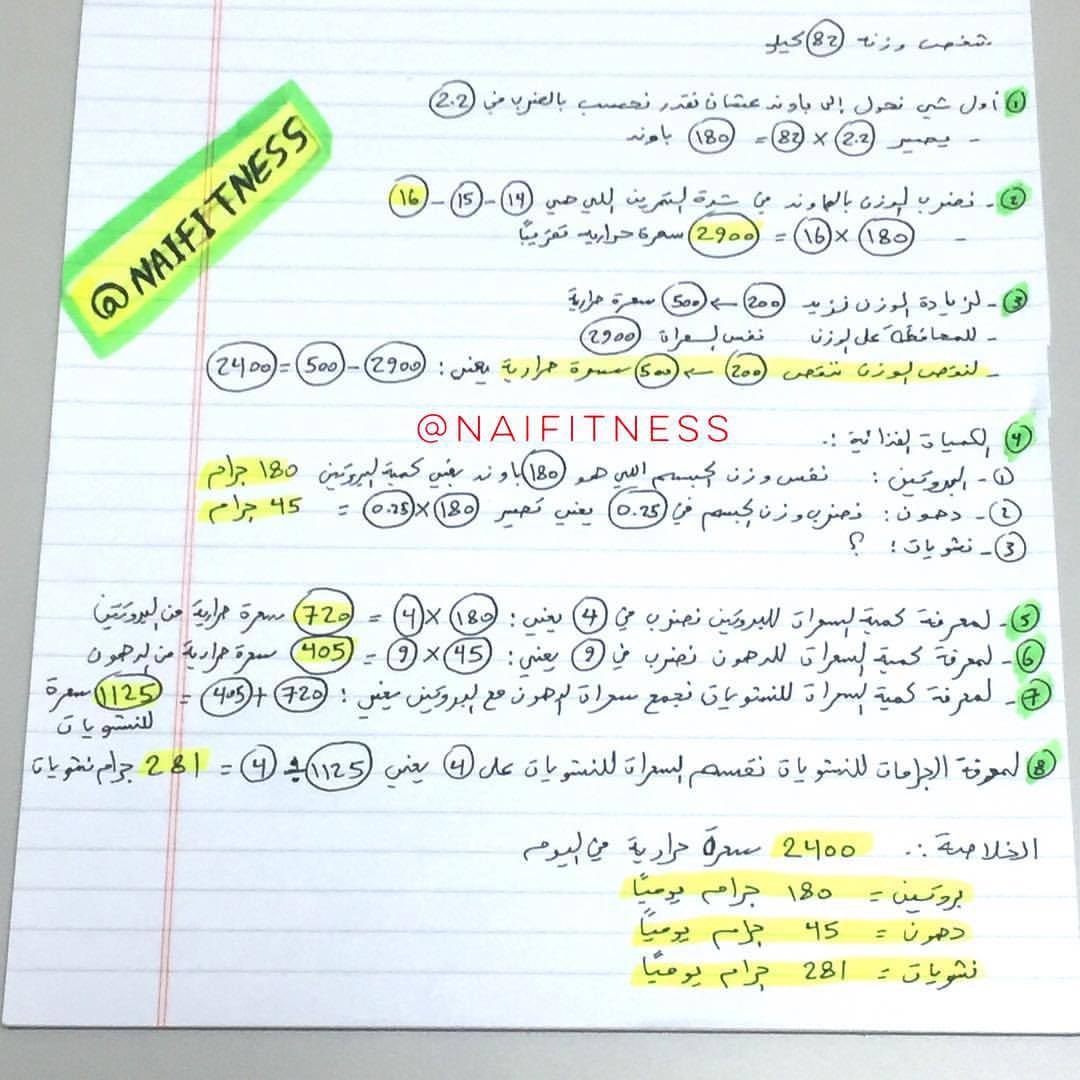 شخص وزنه 82 كيلو
@NAIFITNESS
1 أول شي نحول إلى باوند عشان نقدر نحسب بالضرب في 2.2
- يصير 2.2 × 82 = 180 باوند
2 - نضرب الوزن بالباوند في شدة التمرين اللي هي 14 - 15 - 16
- 180 × 16 = 2900 سعرة حرارية تقريبًا
3 - لزيادة الوزن نزيد 200 ← 500 سعرة حرارية
- للمحافظة على الوزن نفس السعرات 2900
- لنقص الوزن ننقص 200 ← 500 سعرة حرارية يعني : 2900 - 500 = 2400
@NAIFITNESS
4 الكميات الغذائية :.
1 - البروتين : نفس وزن الجسم اللي هو 180 باوند يعني كمية البروتين 180 جرام
2 - دهون : نضرب وزن الجسم في 0.25 يعني تصير 180 × 0.25 = 45 جرام
3 - نشويات : ؟
5 - لمعرفة كمية السعرات للبروتين نضرب في 4 يعني : 180 × 4 = 720 سعرة حرارية من البروتين
6 - لمعرفة كمية السعرات للدهون نضرب في 9 يعني : 45 × 9 = 405 سعرة حرارية من الدهون
7 - لمعرفة كمية السعرات للنشويات نجمع سعرات الدهون مع البروتين يعني : 720 + 405 = 1125 سعرة
للنشويات
8 لمعرفة الجرامات للنشويات نقسم السعرات للنشويات على 4 يعني 1125 ÷ 4 = 281 جرام نشويات
الخلاصة :. 2400 سعرة حرارية في اليوم
بروتين = 180 جرام يوميًا
دهون = 45 جرام يوميًا
نشويات = 281 جرام يوميًا